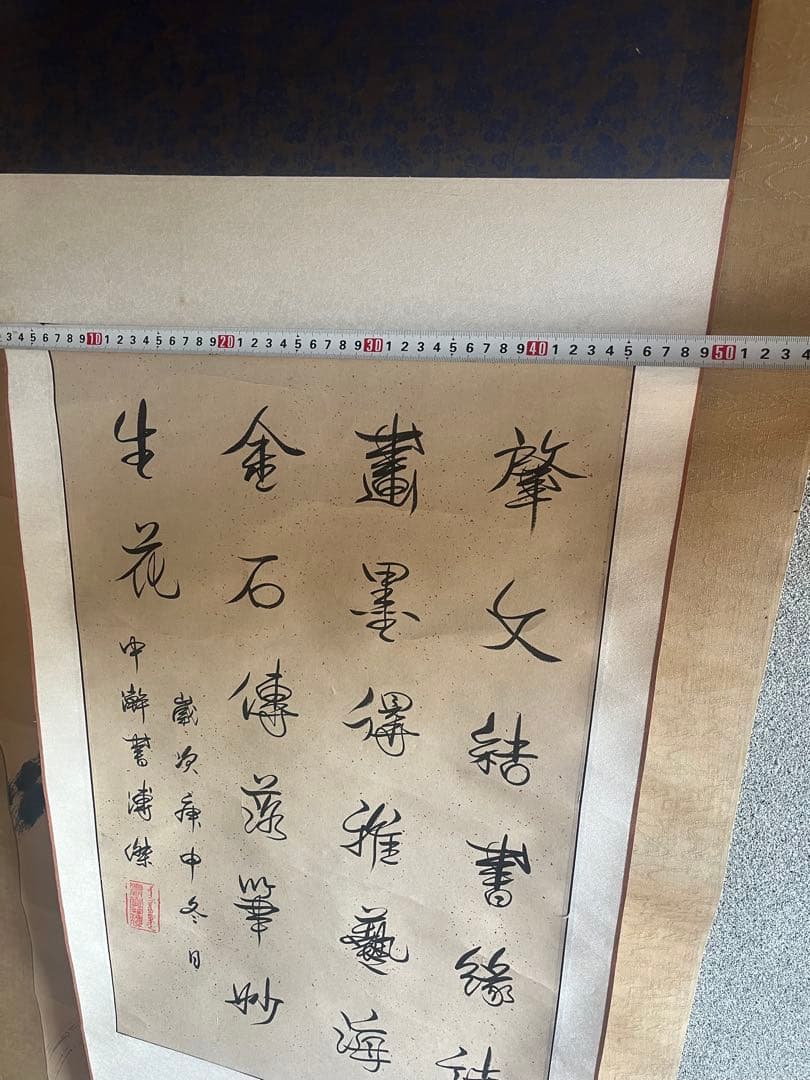 3 4 5 6 7 8 9 10 1 2 3 4 5 6 7 8 9 20 1 2 3 4 5 6 7 8 9 30 1 2 3 4 5 6 7 8 9 40 1 2 3 4 5 6 7 8 9 50 1 2 3 4
肇文結書緣
畫墨推藝海
金石傳落筆妙
生花
歲次庚申冬日
中瀚書溥傑